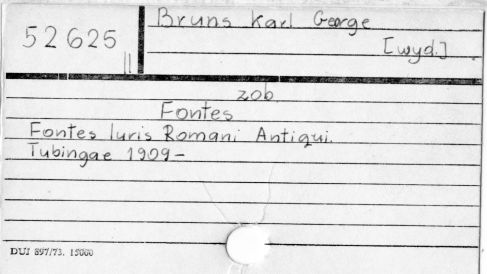 52625
II
Bruns Karl George
[wyd.]
zob.
Fontes
Fontes Iuris Romani Antiqui.
Tubingae 1909-
DUJ 897/73. 15000